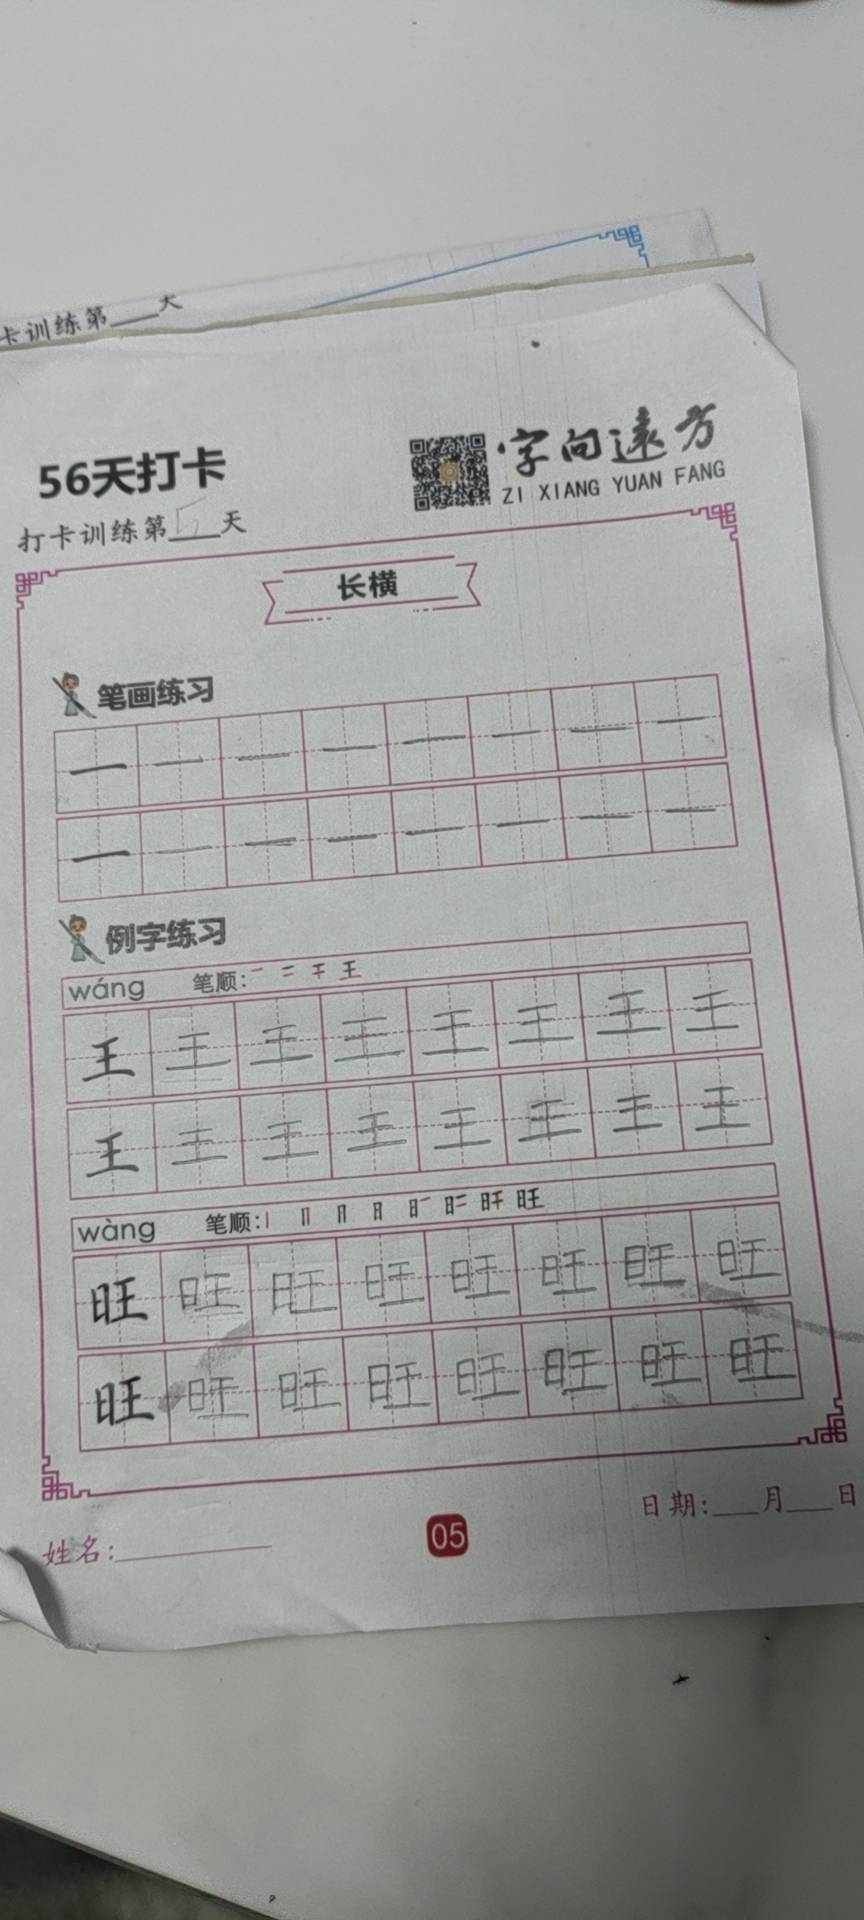 卡训练第___天
56天打卡
字向远方
ZI XIANG YUAN FANG
打卡训练第5天
长横
笔画练习
一 一 一 一 一 一 一 一
一 一 一 一 一 一 一 一
例字练习
wáng 笔顺: 一 二 干 王
王 王 王 王 王 王 王 王
王 王 王 王 王 王 王 王
wàng 笔顺: 丨 冂 日 旺
旺 旺 旺 旺 旺 旺 旺 旺
旺 旺 旺 旺 旺 旺 旺 旺
日期:___月___日
05
姓名: